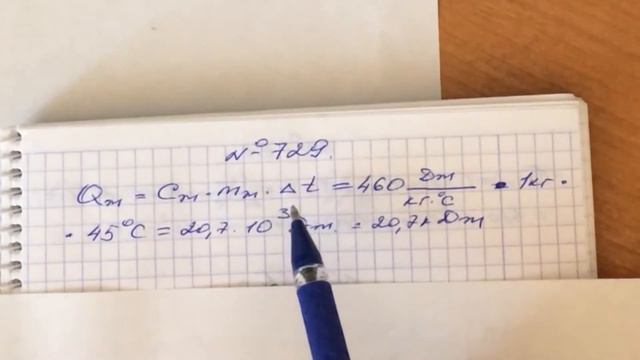 № 729.
Qж = Cж · mж · Δt = 460 Дж/кг·°C · 1кг ·
· 45°C = 20,7 · 10³ Дж = 20,7 кДж